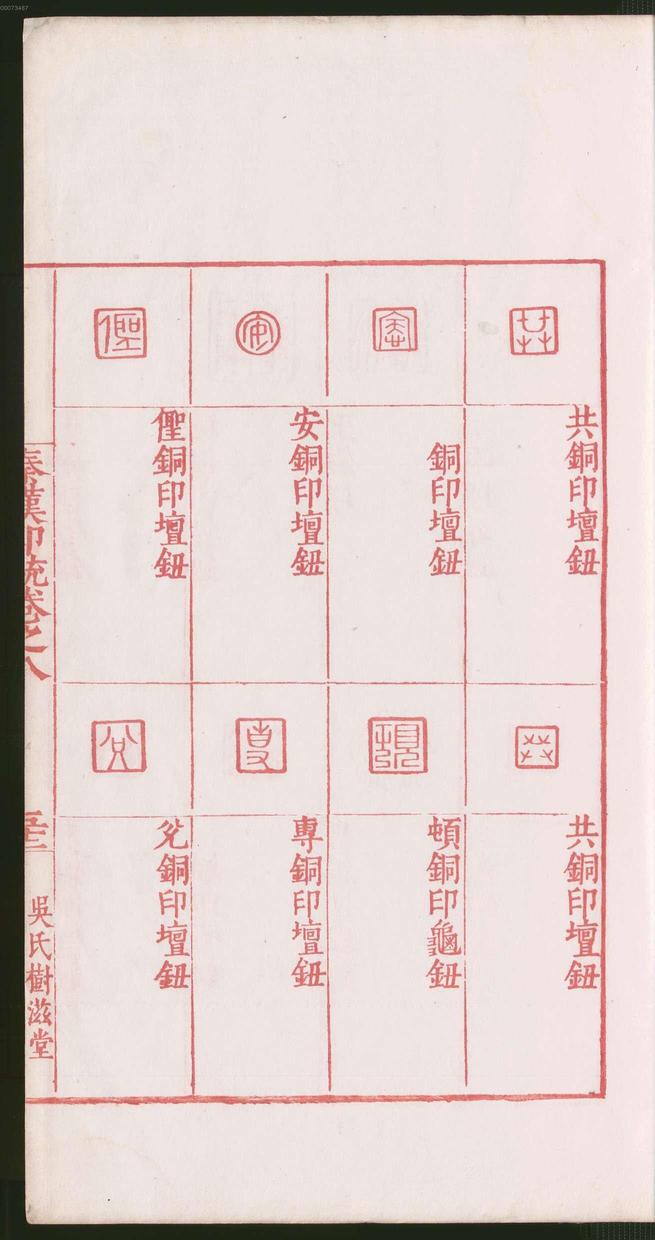 00073487
共銅印壇鈕
銅印壇鈕
安銅印壇鈕
𠐻銅印壇鈕
共銅印壇鈕
頓銅印龜鈕
專銅印壇鈕
兊銅印壇鈕
秦漢印統卷之八
吳氏樹滋堂